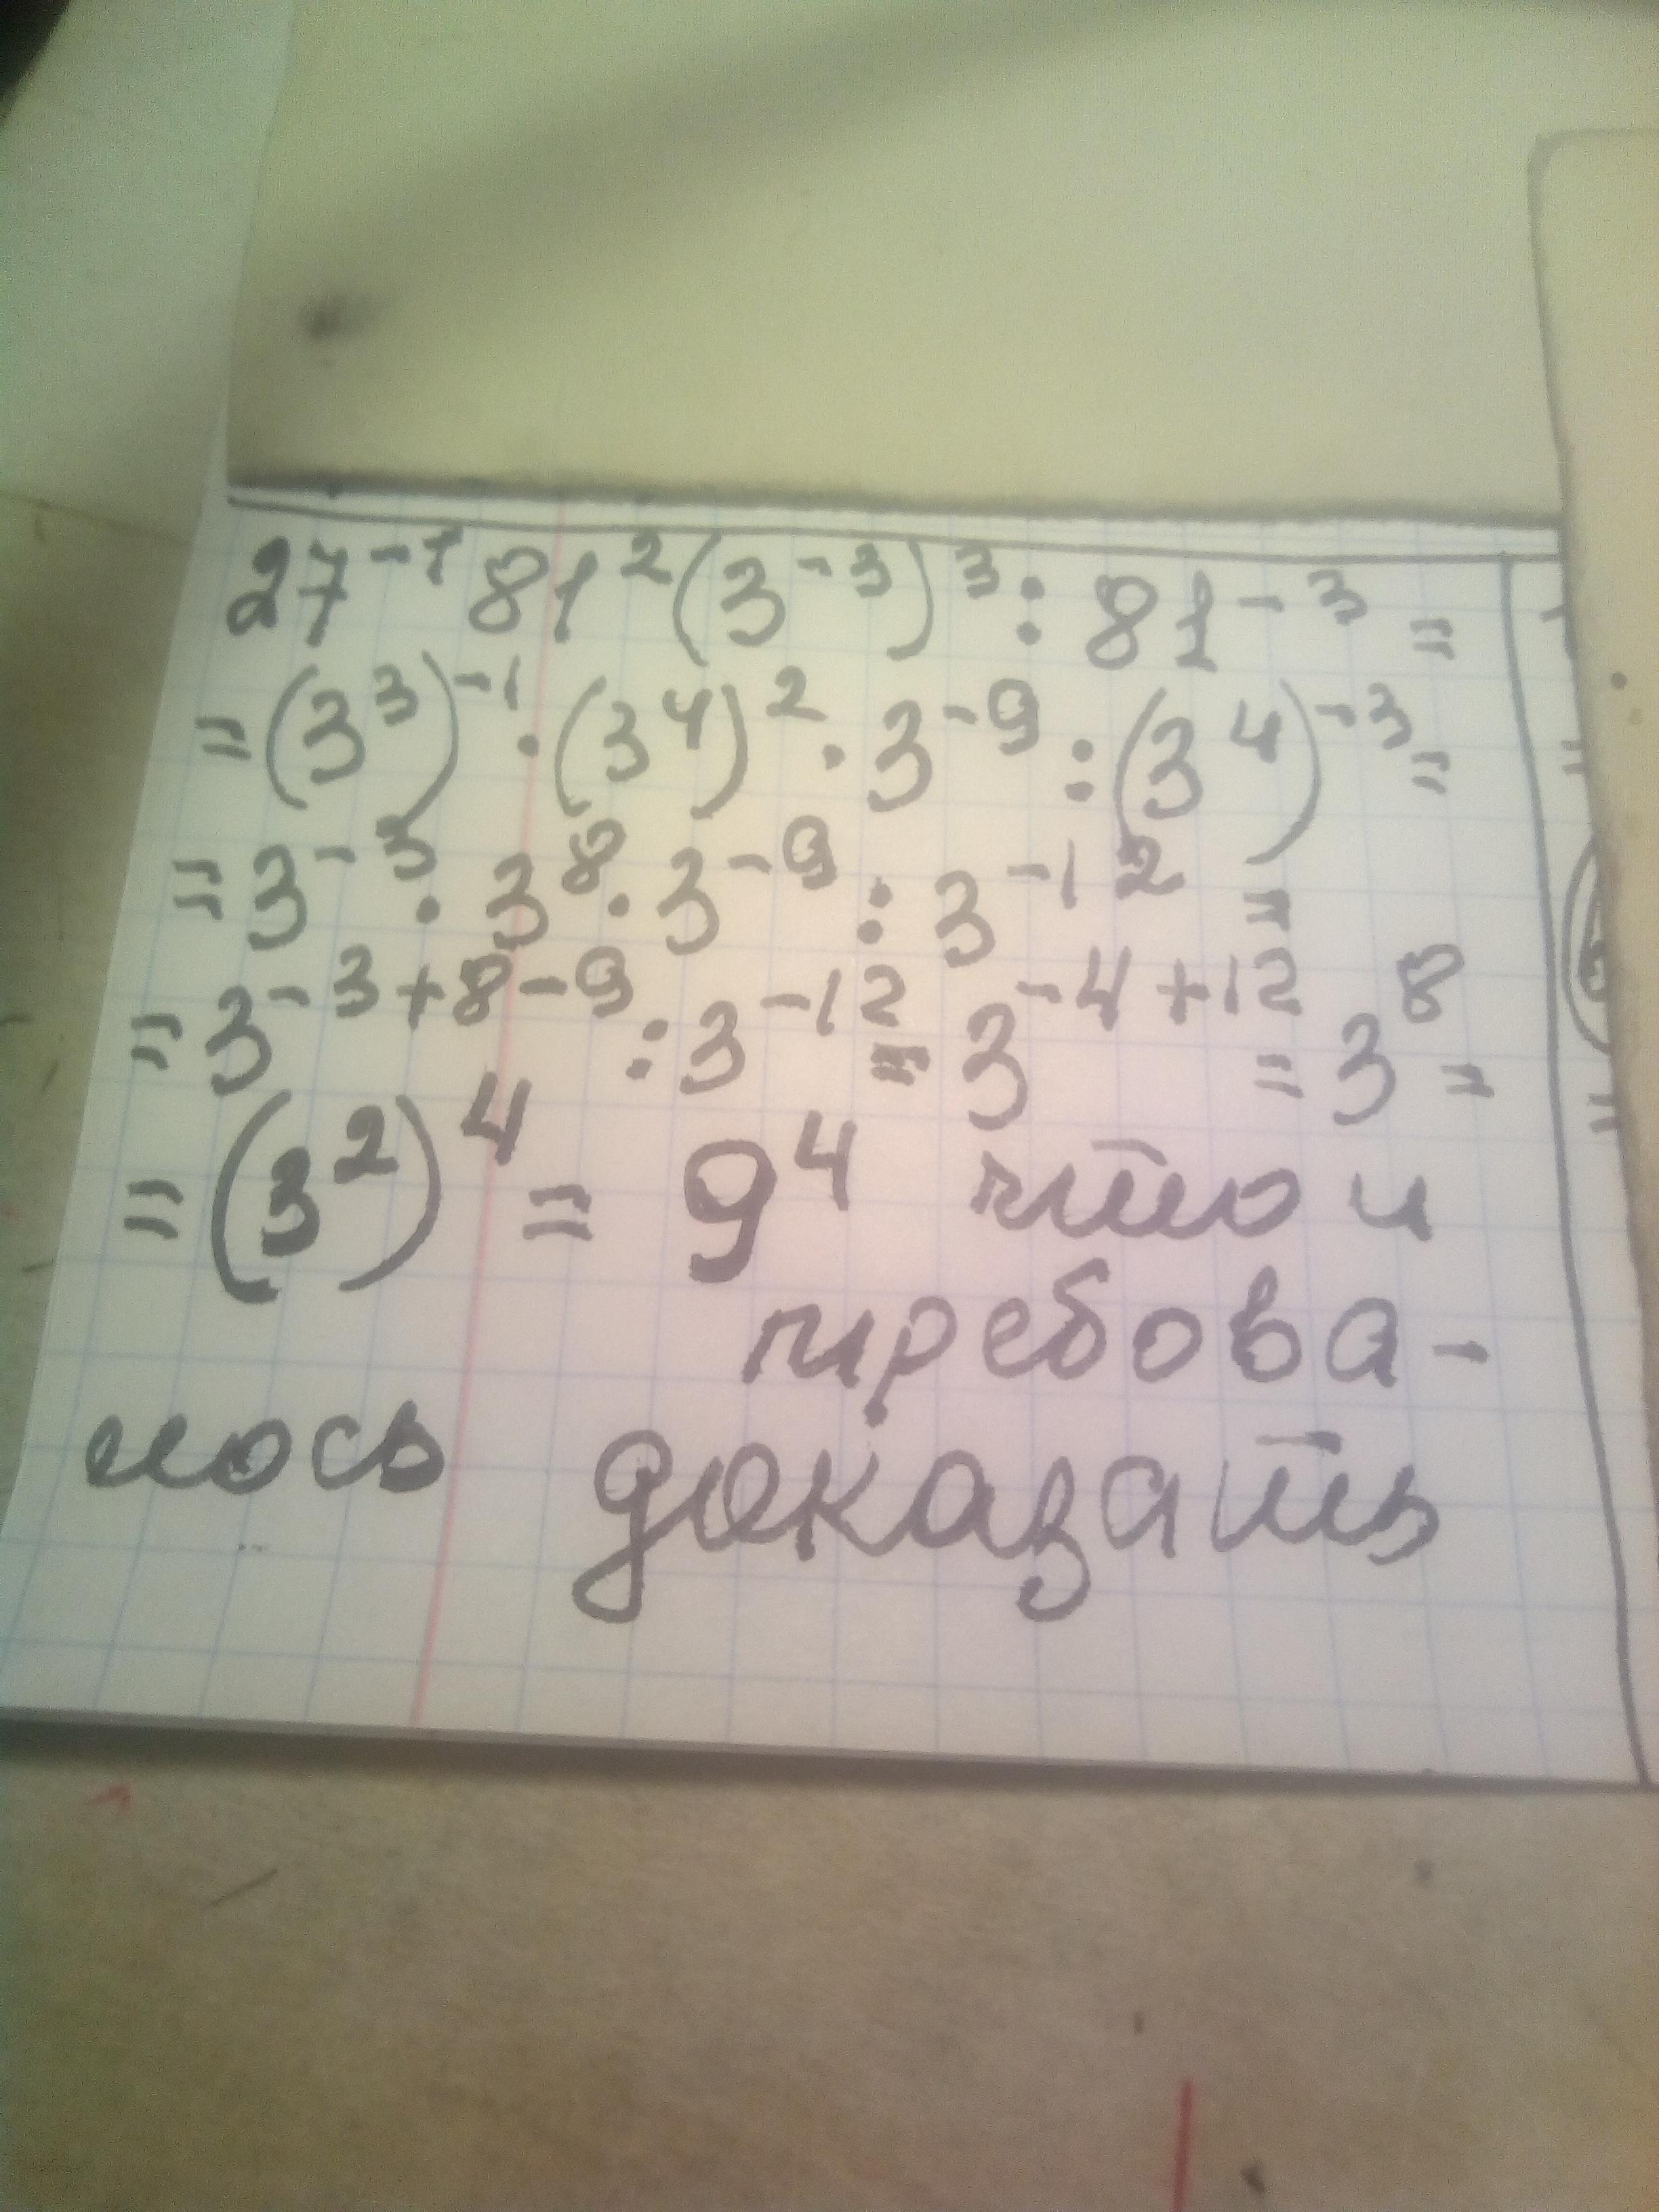 27⁻¹ 81² (3⁻³)³ : 81⁻³ =
= (3³)⁻¹ · (3⁴)² · 3⁻⁹ : (3⁴)⁻³ =
= 3⁻³ · 3⁸ · 3⁻⁹ : 3⁻¹² =
= 3⁻³⁺⁸⁻⁹ : 3⁻¹² = 3⁻⁴⁺¹² = 3⁸ =
= (3²)⁴ = 9⁴ что и
требова-
лось доказать